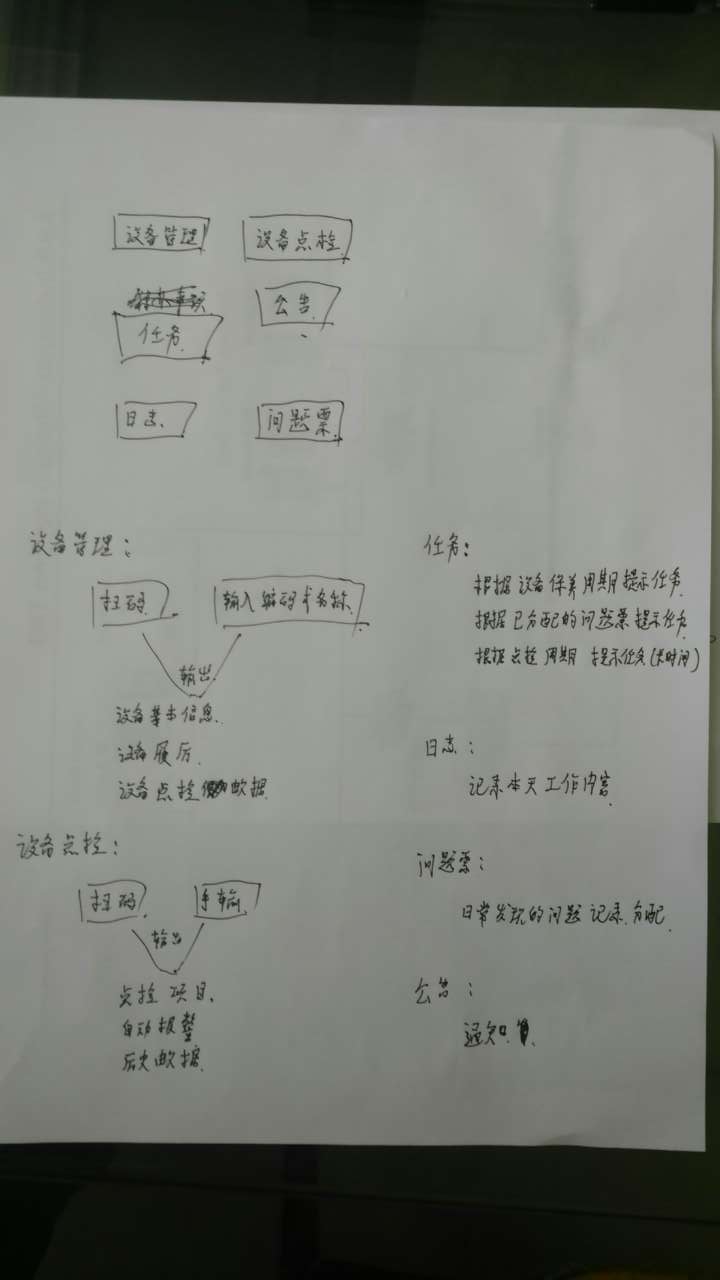 设备管理 设备点检
公告
任务
日志 问题票
设备管理：
扫码 输入编码或名称
输出
设备基本信息
设备履历
设备点检数据
设备点检：
扫码 手输
输出
点检项目
自动报警
历史数据
任务：
根据设备保养周期提示任务
根据已分配的问题票提示任务
根据点检周期 提示任务(实时间)
日志：
记录本天工作内容
问题票：
日常发现的问题记录.分配
公告：
通知